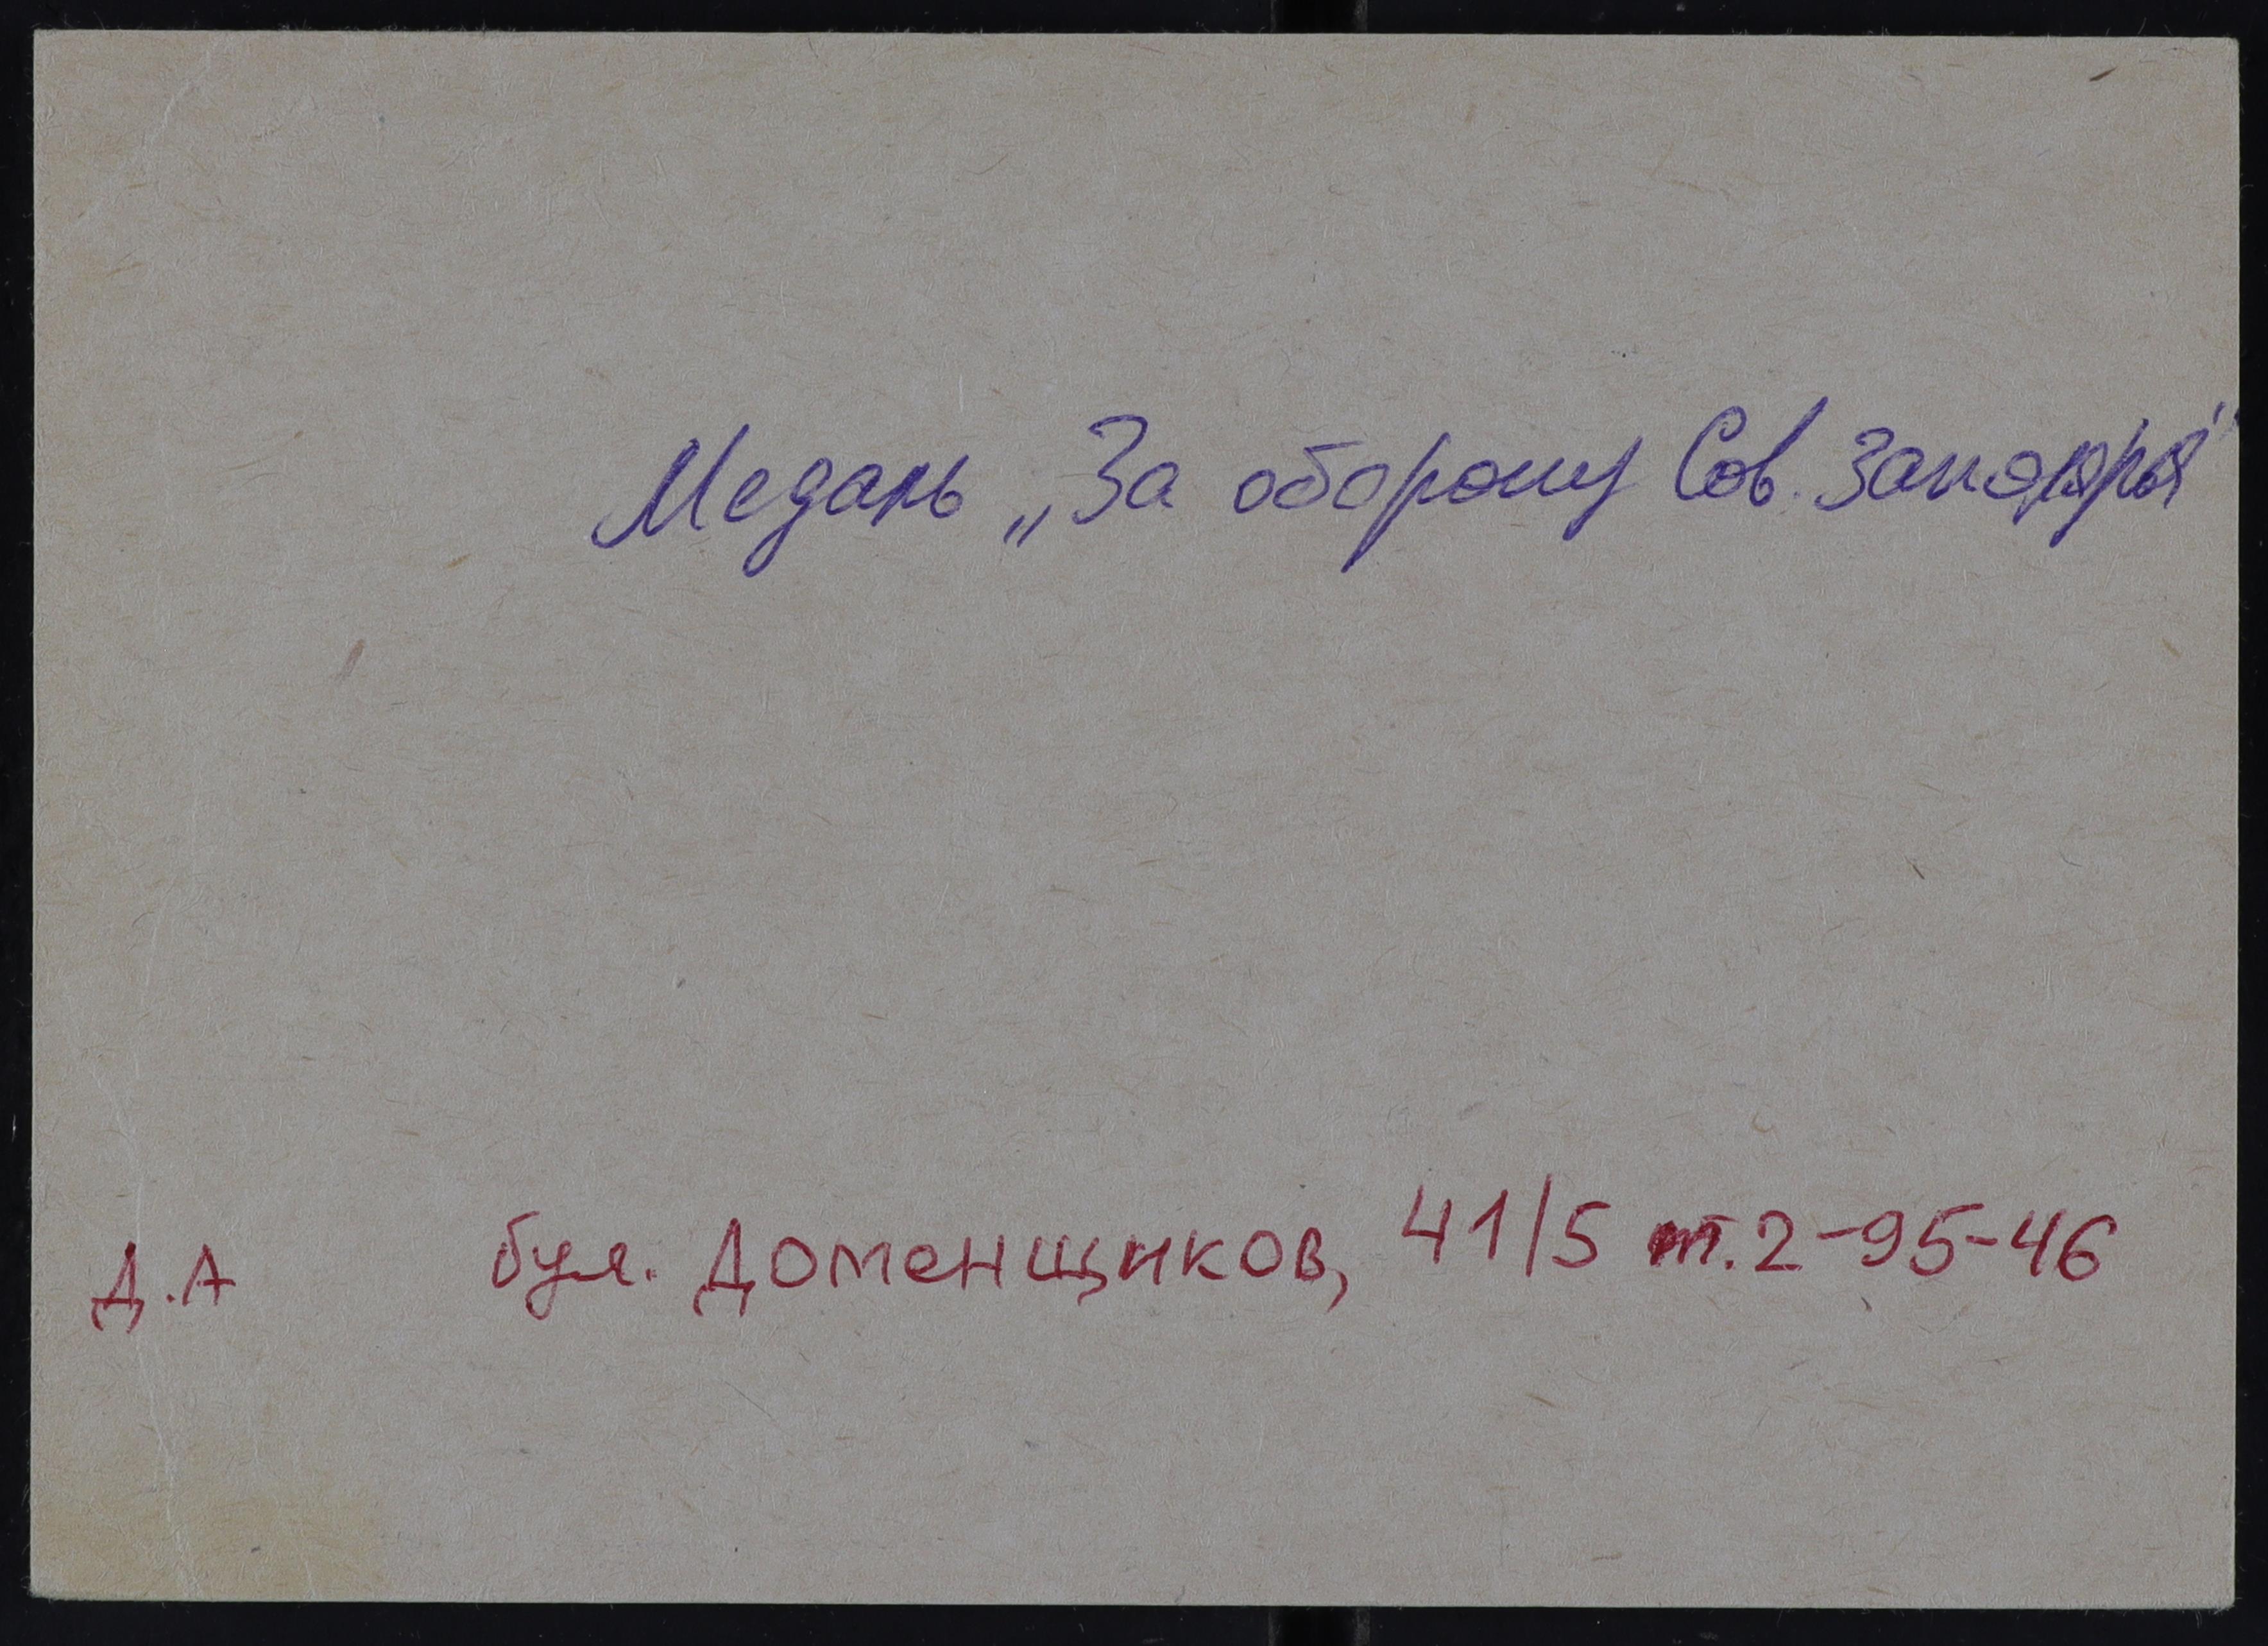 Медаль „За оборону Сов. Заполярья"
Д.А бул. Доменщиков, 41/5 т. 2-95-46